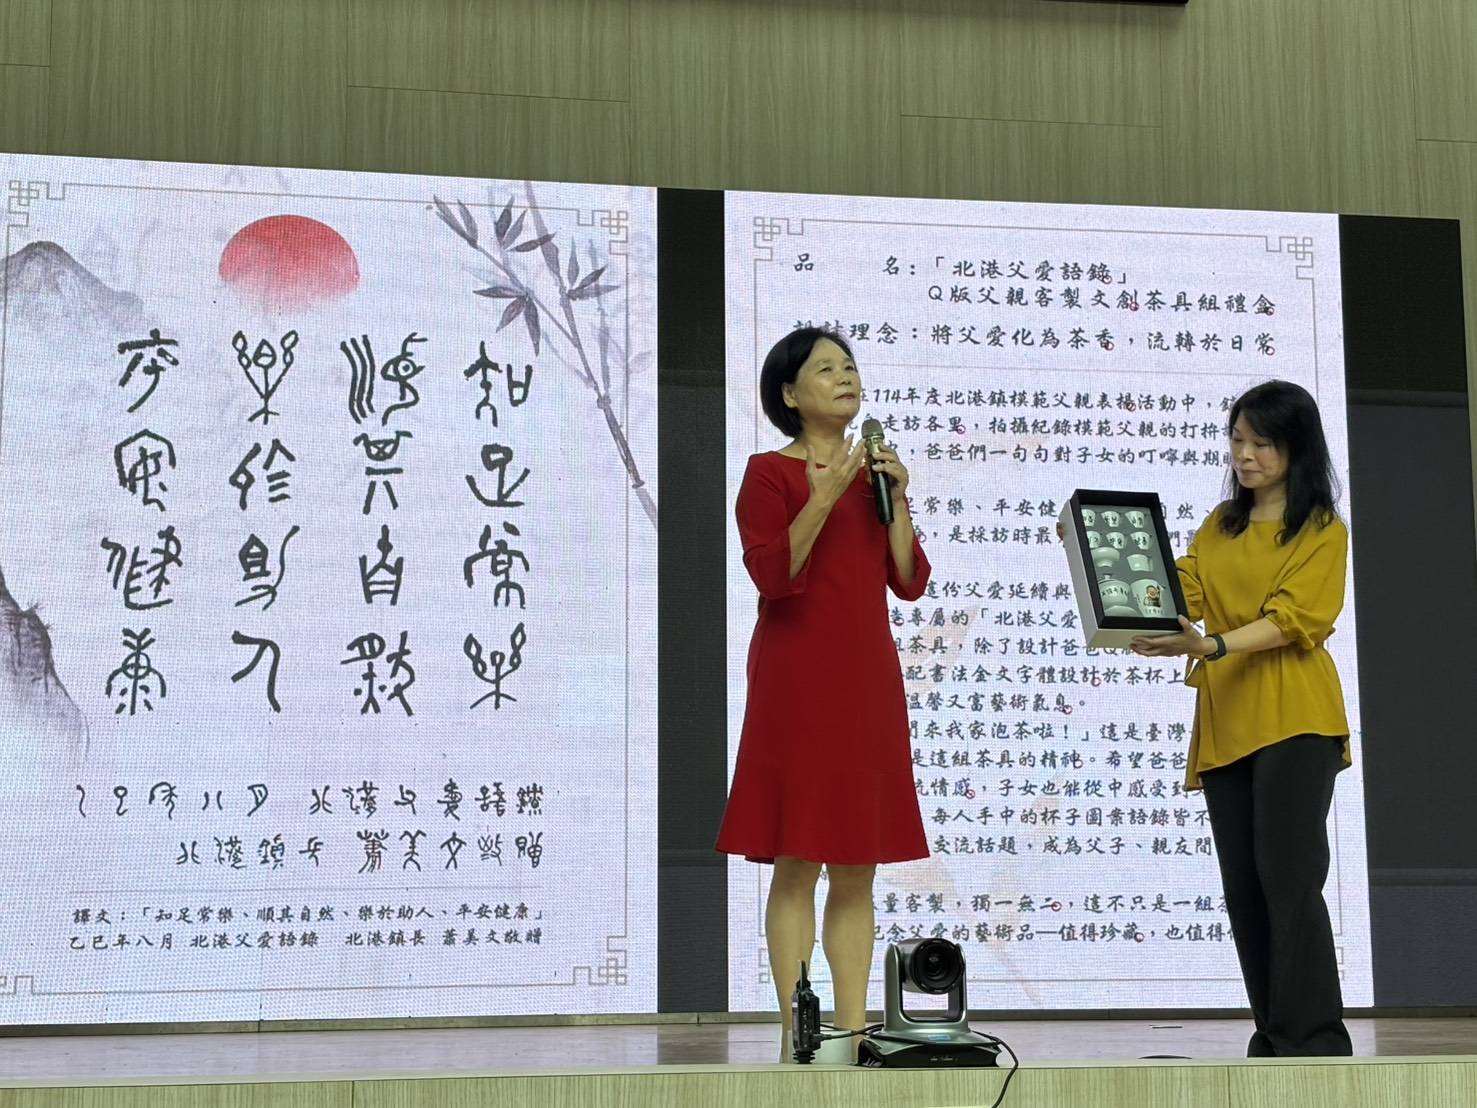 知足常樂
順其自然
樂於助人
平安健康
乙巳年八月 北港父愛語錄
北港鎮長 蕭美文敬贈
譯文：「知足常樂、順其自然、樂於助人、平安健康」
乙巳年八月 北港父愛語錄 北港鎮長 蕭美文敬贈
品 名：「北港父愛語錄」
Q版父親客製文創茶具組禮盒
理念：將父愛化為茶香，流轉於日常
114年度北港鎮模範父親表揚活動中，
走訪各里，拍攝紀錄模範父親的打拚
，爸爸們一句句對子女的叮嚀與期
常樂、平安健 自然
，是採訪時最 們
這份父愛延續與
專屬的「北港父愛
組茶具，除了設計爸爸Q版
配書法金文字體設計於茶杯上
溫馨又富藝術氣息。
來我家泡茶啦！」這是臺灣
是這組茶具的精神。希望爸爸
情感，子女也能從中感受到
每人手中的杯子圖案語錄皆不
交流話題，成為父子、親友間
量客製，獨一無二，這不只是一組
紀念父愛的藝術品—值得珍藏，也值得